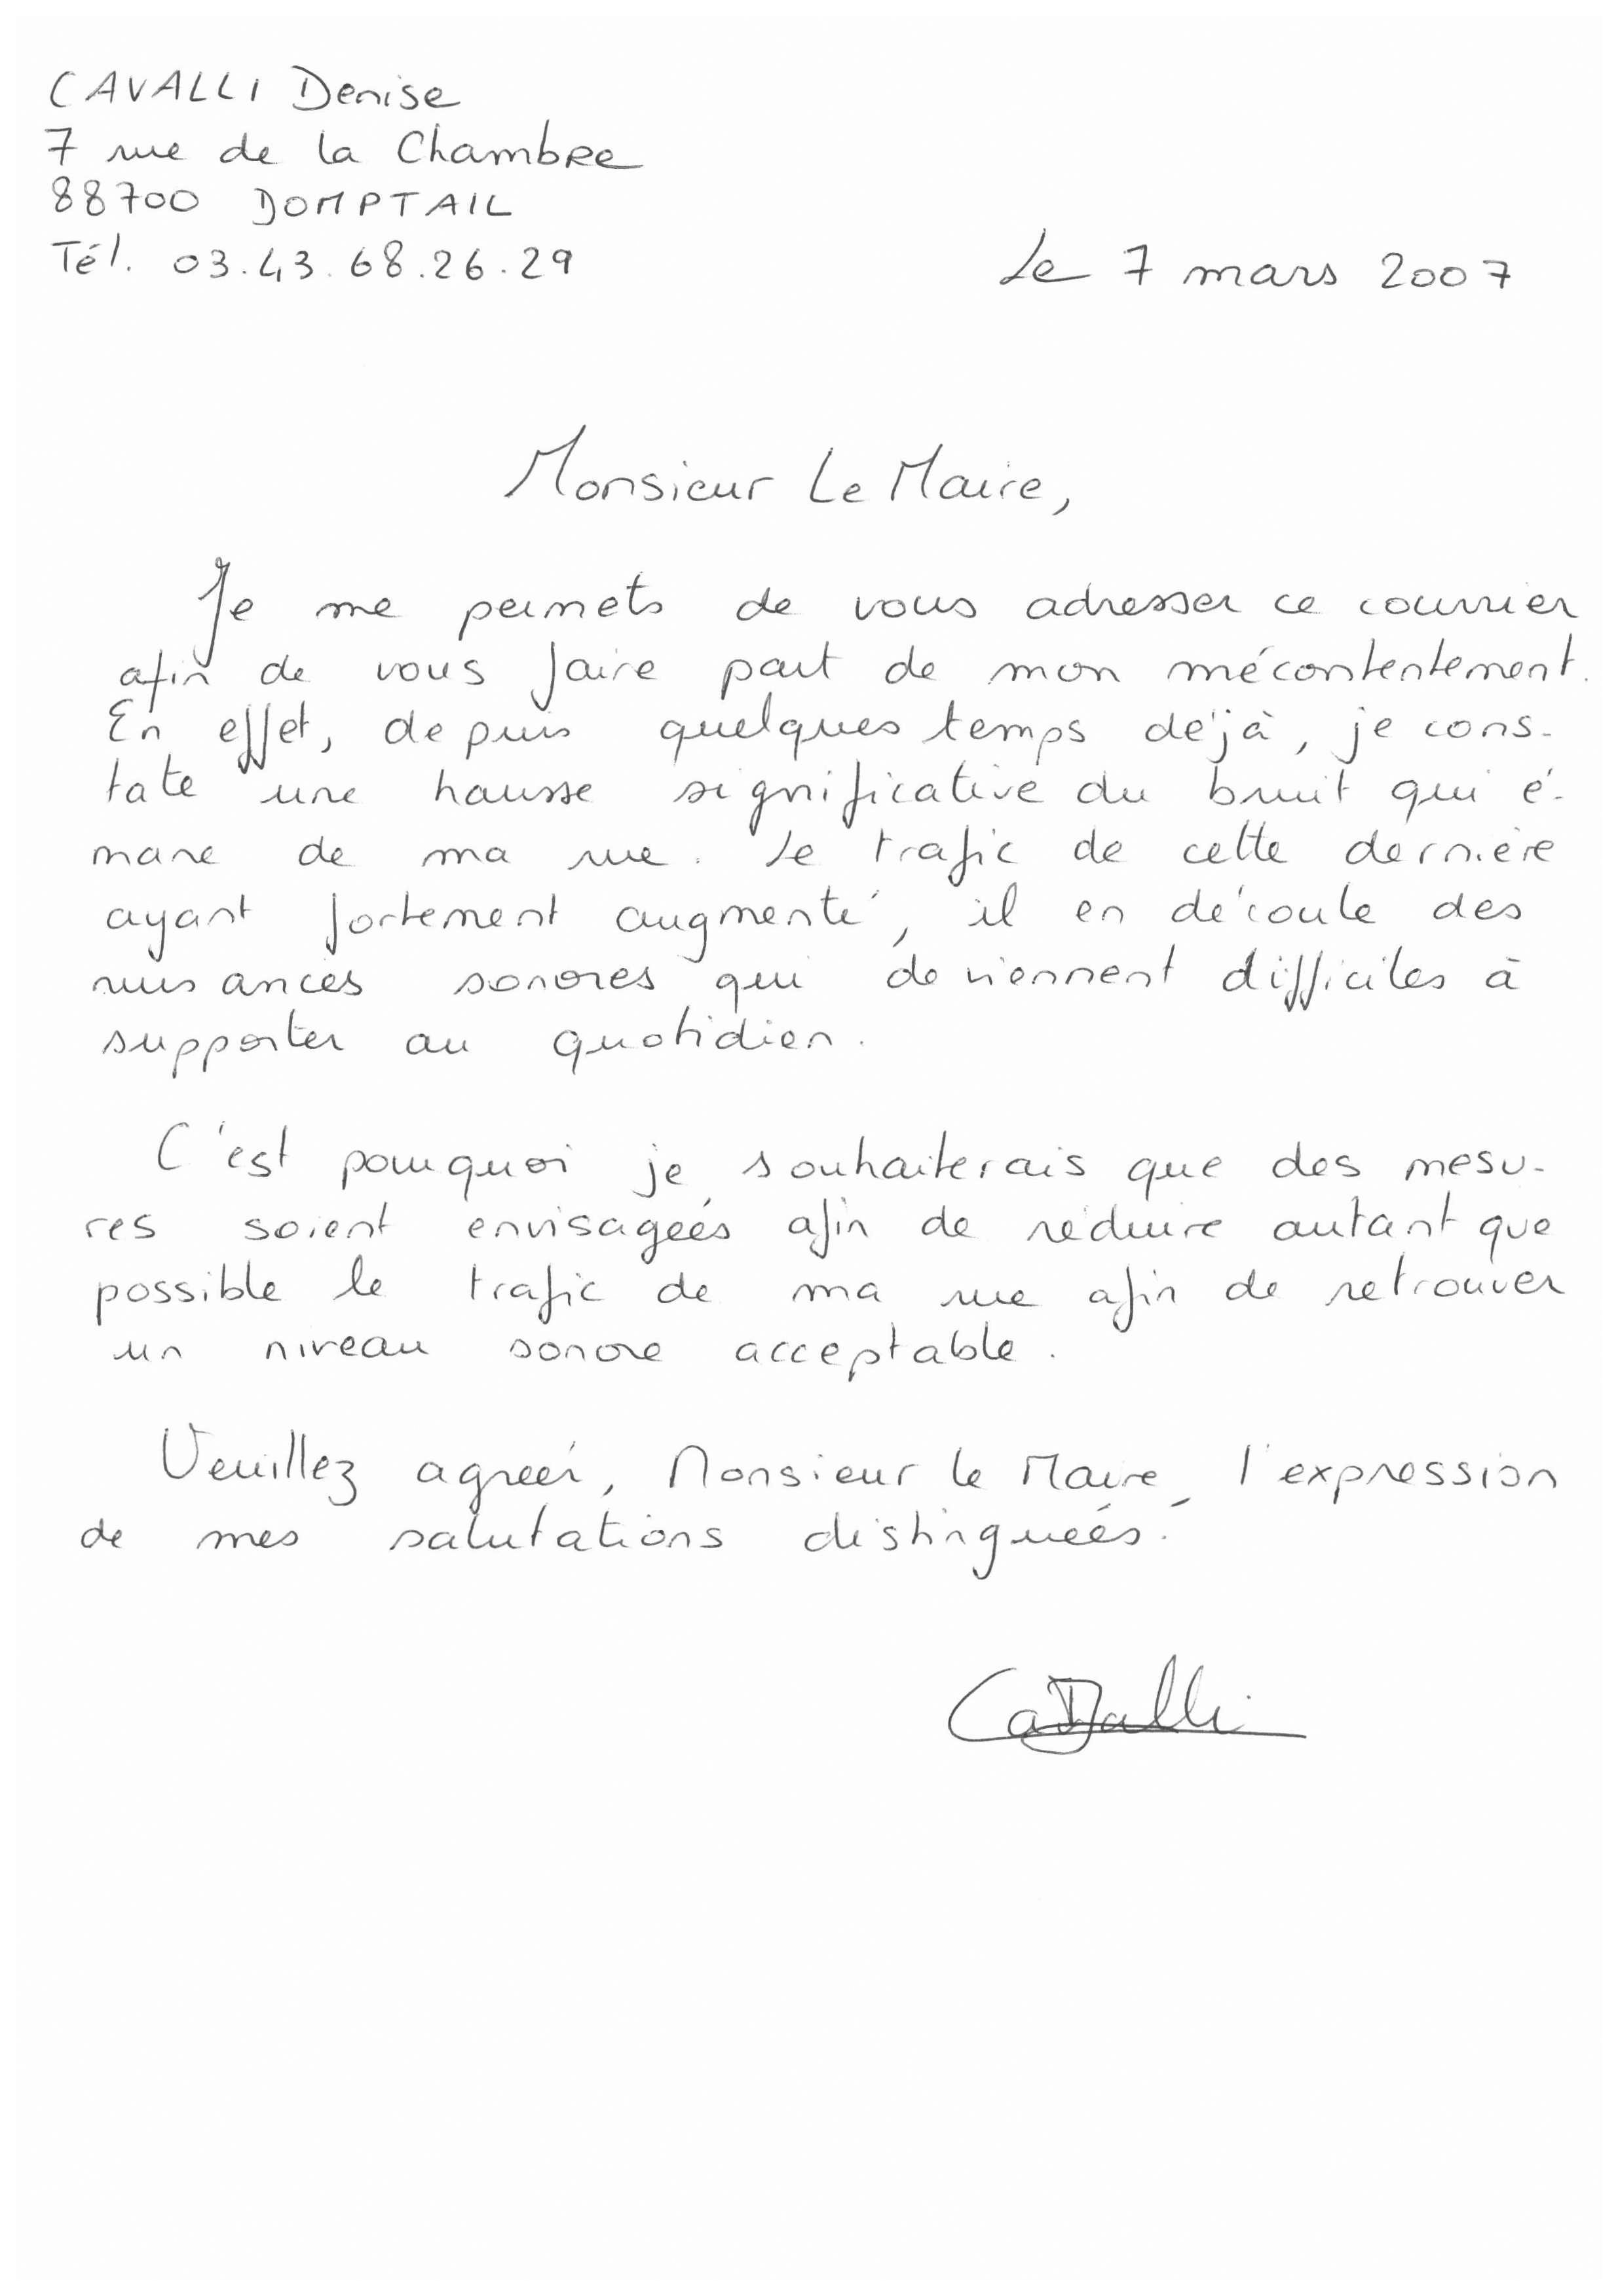 CAVALLI Denise
7 rue de la Chambre
88700 DOMPTAIL
Tél. 03.43.68.26.29
Le 7 mars 2007
Monsieur Le Maire,
Je me permets de vous adresser ce courrier
afin de vous faire part de mon mécontentement.
En effet, depuis quelques temps déjà, je cons-
tate une hausse significative du bruit qui é-
mane de ma rue. Le trafic de cette dernière
ayant fortement augmenté, il en découle des
nuisances sonores qui deviennent difficiles à
supporter au quotidien.
C'est pourquoi je souhaiterais que des mesu-
res soient envisagées afin de réduire autant que
possible le trafic de ma rue afin de retrouver
un niveau sonore acceptable.
Veuillez agréer, Monsieur le Maire, l'expression
de mes salutations distinguées.
Cavalli